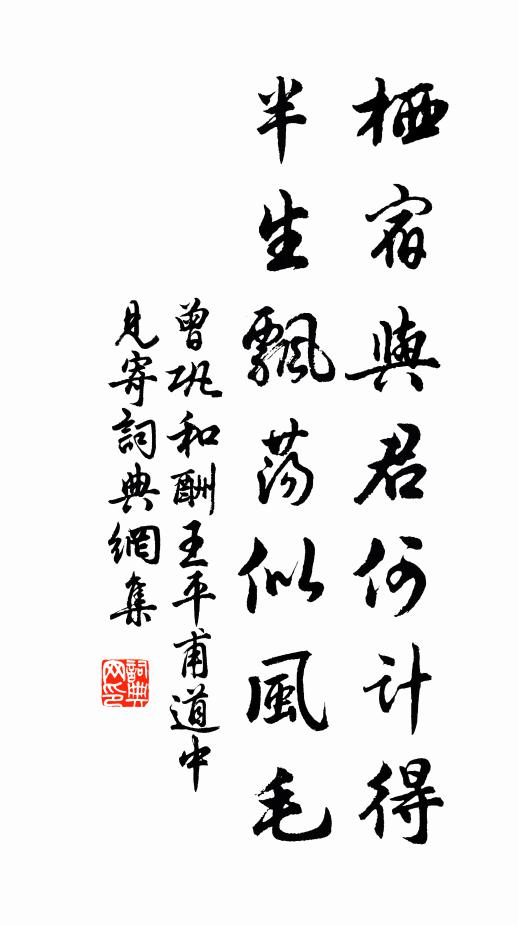 栖宿與君何計得
半生飄蕩似風毛
曾巩和酬王平甫道中
見寄詞典網集
詞典网印